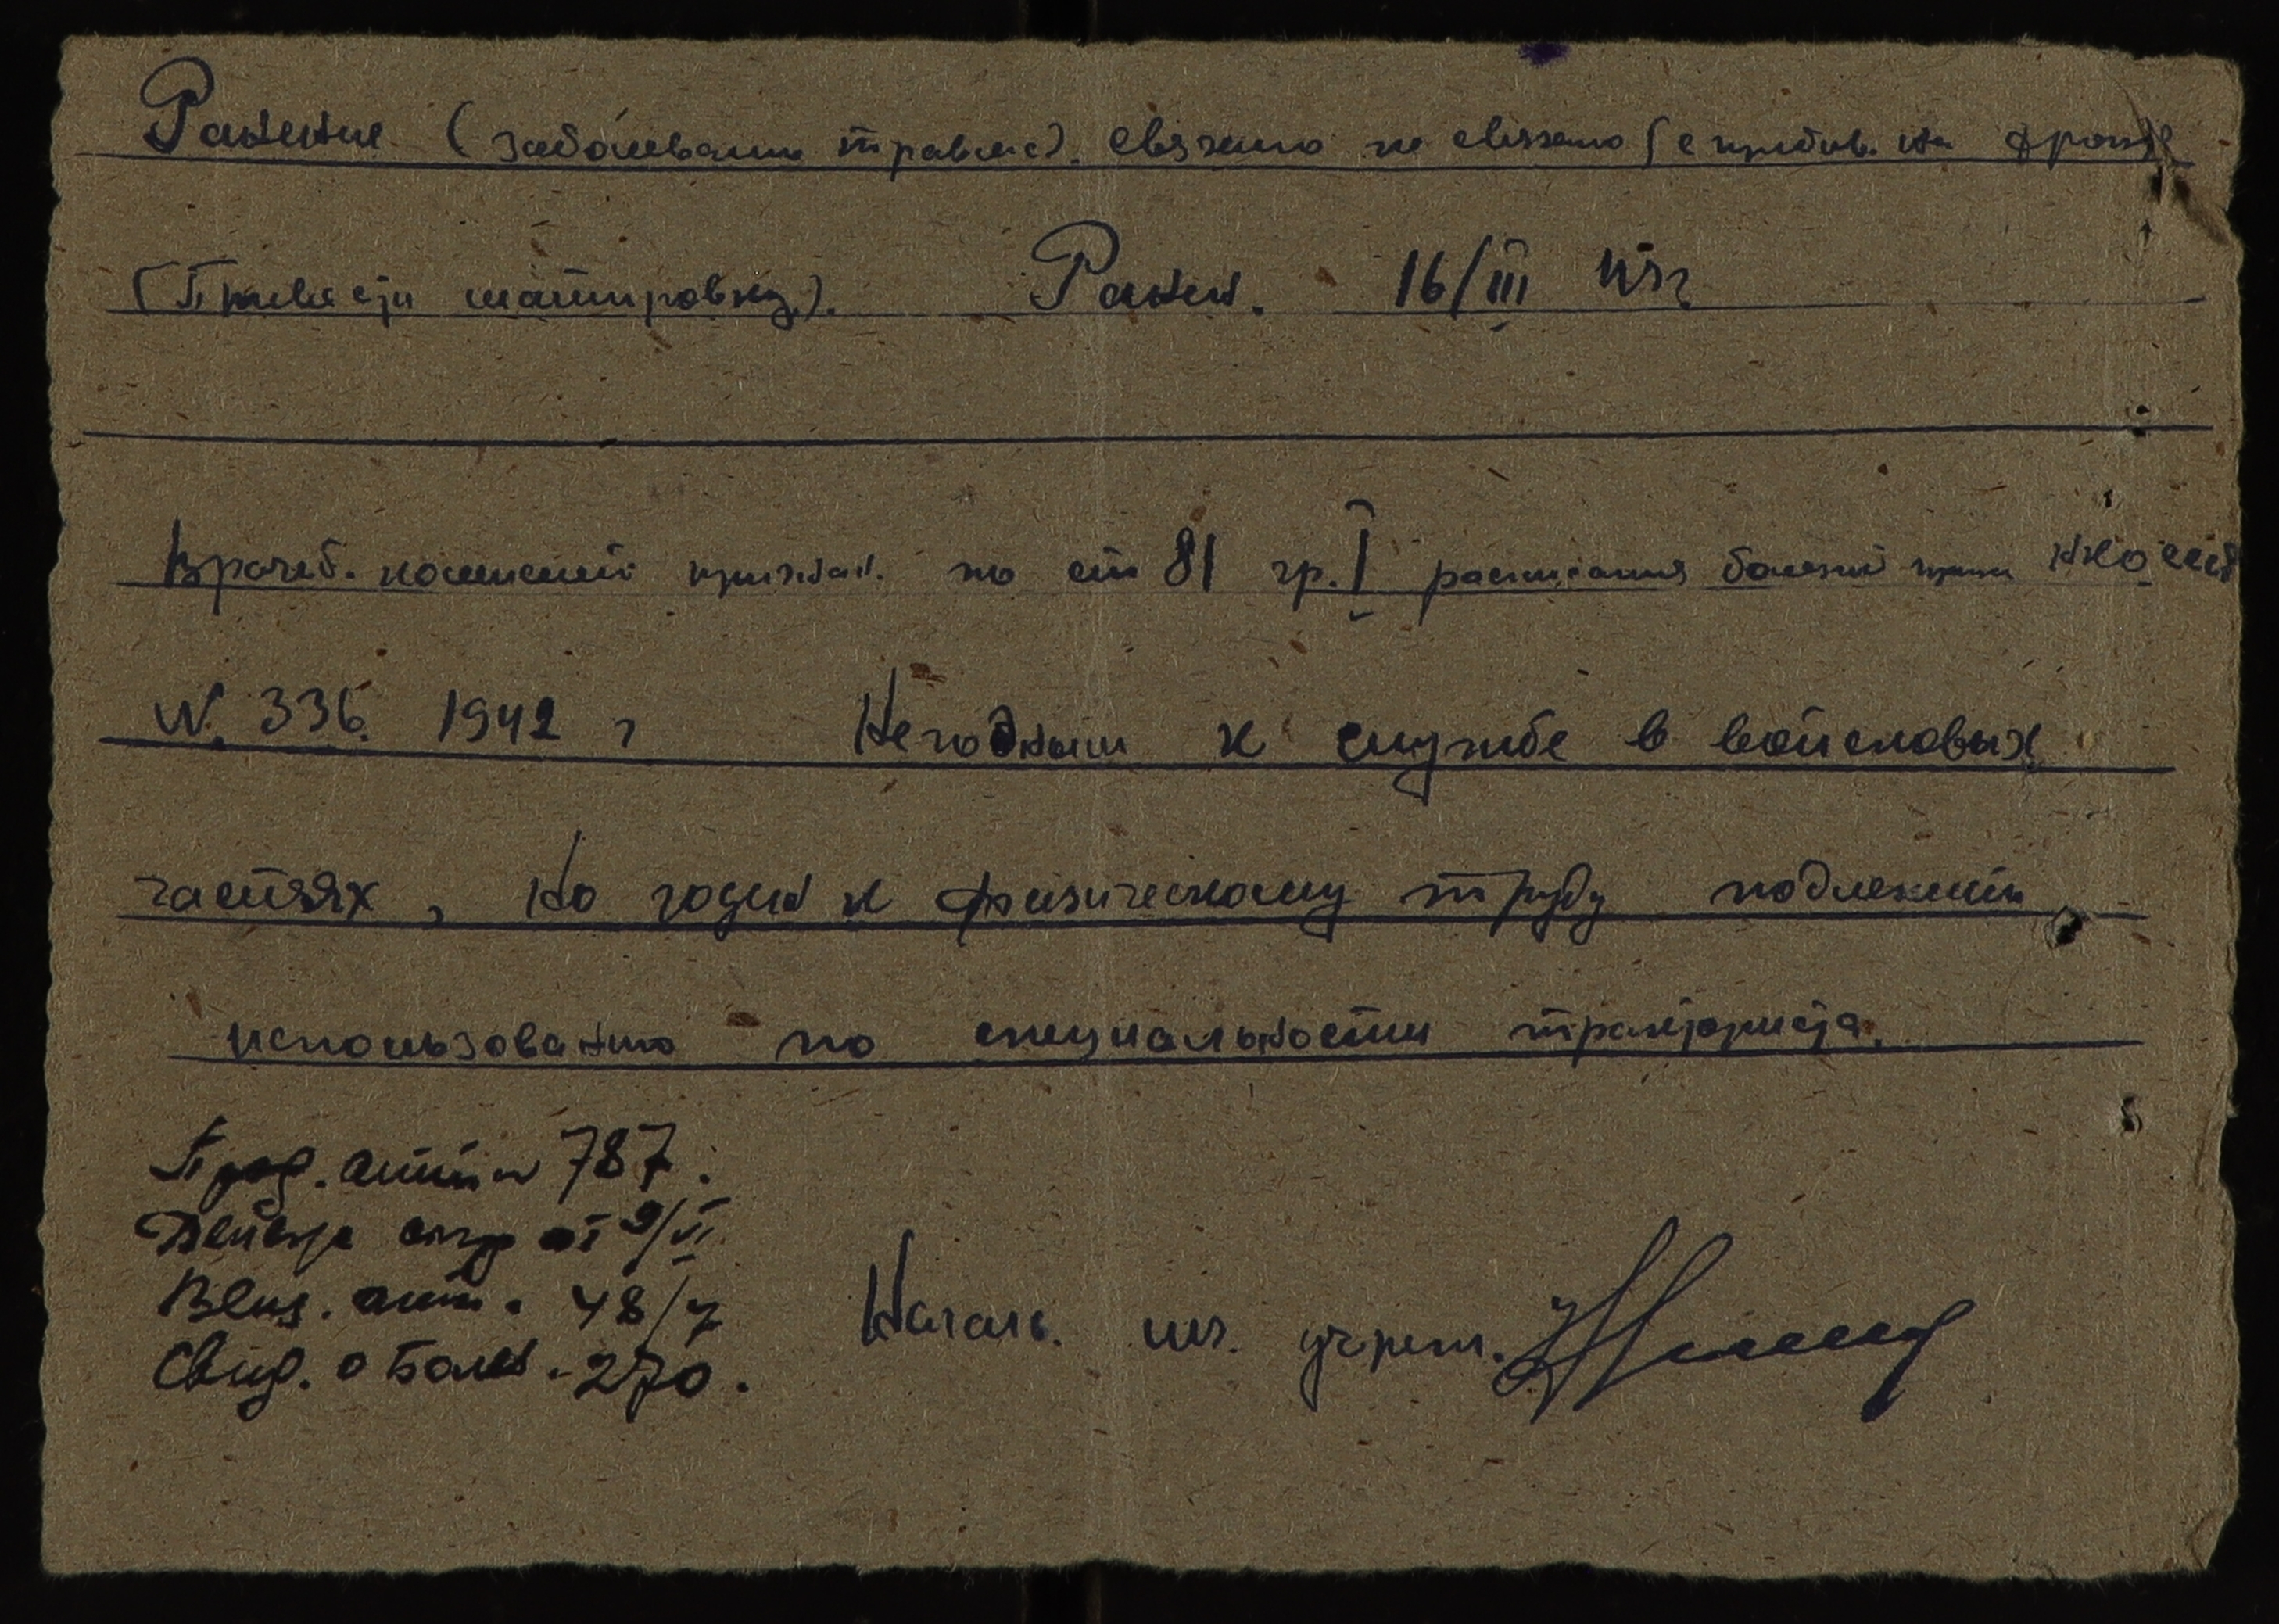 Ранение (заболевание травма). связано не связано (с пребыв. на фронте
(Ранен. 16/III 43г
Врачеб. комиссией признан. по ст 81 гр. I расписания болезней приказ НКО СССР
N. 336. 1942 г Негодным к службе в войсковых
частях, но годен к физическому труду подлежит
использованию по специальности тракториста.
Прод. атт. н 787.
от 9/VI
Вещ. атт. 48/7
Свид. о болез. 270.
Началь. леч. учреж.